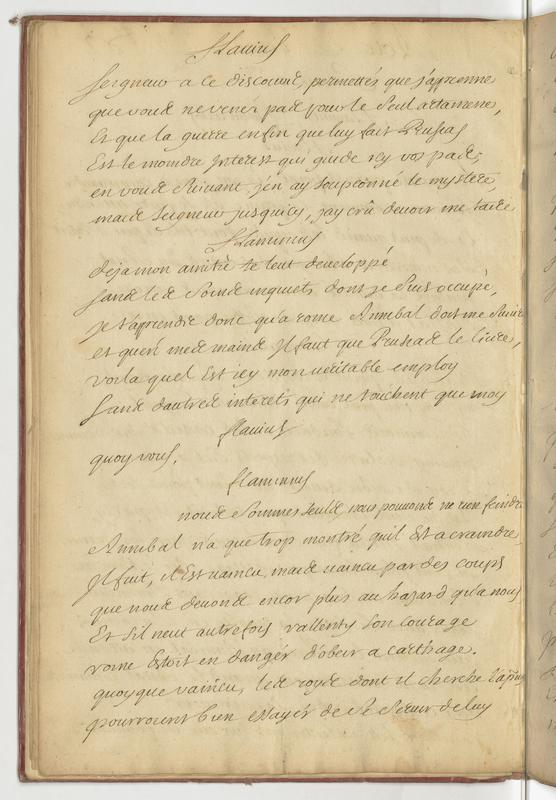 flavius
Seigneur a ce discours, permettés que j'aprenne
que vous ne venés pas pour le seul artamene,
Et que la guerre enfin que luy fait Prusias
Est le moindre Interest qui guide icy vos pas;
en vous suivant j'en ay soupçonné le mystere,
mais seigneur jusquicy, j'ay crû devoir me taire
flaminius
deja mon amitié te leut developpé
sans les soins inquiets dont je suis occupé,
je t'aprendré donc qu'a rome Annibal doit me suivre
et qu'en mes mains Il faut que Prusias le livre,
voila quel Est icy mon veritable employ
sans dautres interets qui ne touchent que moy
flavius
quoy vous.
flaminius
nous sommes seuls, nous pouvons ne rien feindre
Annibal n'a que trop montré quil Est a craindre,
Il fuit, il Est vaincu, mais vaincu par des coups
que nous devons encor plus au hazard qu'a nous
Et s'il neut autrefois rallenty son courage
rome Estoit en dangér d'obeir a carthage.
quoy que vaincu, les roys dont il cherche l'apuy
pourroient bien essayér de se servir de luy